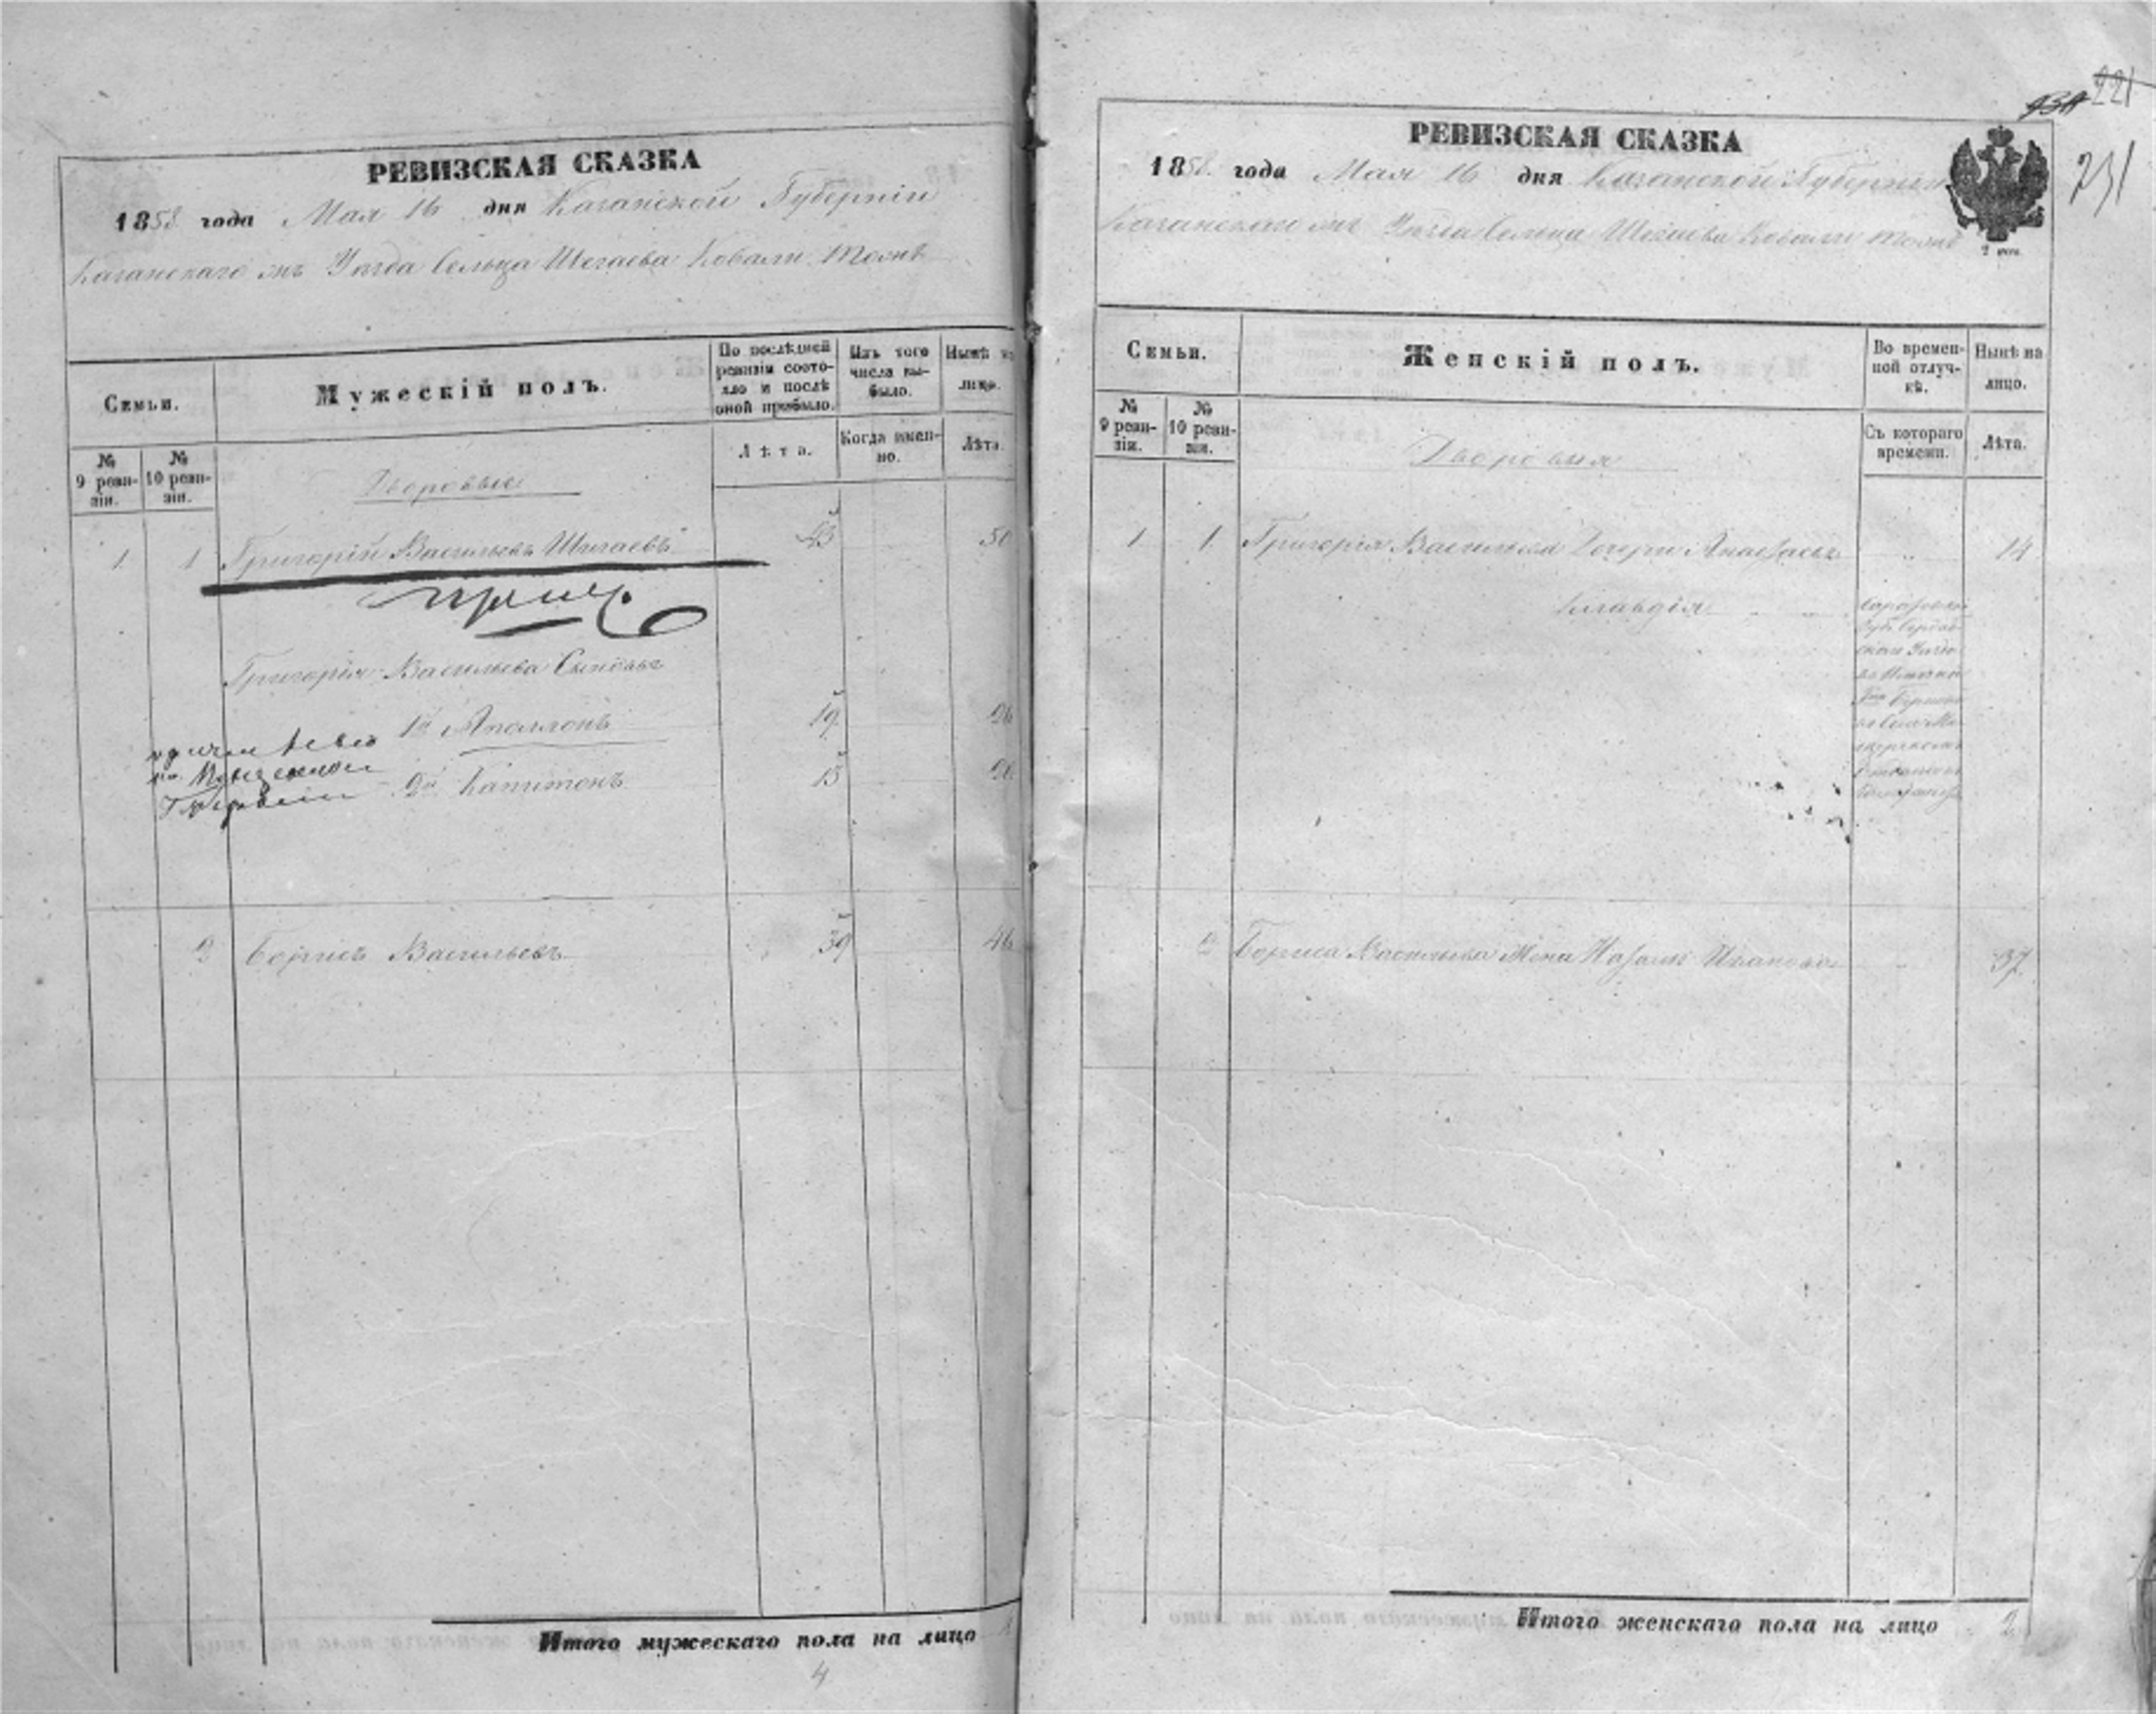 РЕВИЗСКАЯ СКАЗКА
1858 года Мая 16 дня Казанской Губернiи
Казанскаго Уезда Сельца Шигаева Ковали тожъ
Семьи.
Мужескій полъ.
По послѣдней ревизіи состояло и послѣ оной прибыло.
Изъ того числа выбыло.
Нынѣ на лицо.
№ 9 ревизіи.
№ 10 ревизіи.
Лѣта.
Когда именно.
Лѣта.
Дворовые
1 1 Григорій Васильевъ Шигаевъ 43 50
Григорія Васильева Сыновья
1й Аполлонъ 19 26
2й Капитонъ 13 20
Губерніи
2 Борисъ Васильевъ 39 46
Итого мужескаго пола на лицо
4
221
231
РЕВИЗСКАЯ СКАЗКА
1858 года Мая 16 дня Казанской Губерніи
Казанскаго Уезда Сельца Шигаева Ковали тожъ
Семьи.
Женскій полъ.
Во временной отлучкѣ.
Нынѣ на лицо.
№ 9 ревизіи.
№ 10 ревизіи.
Съ котораго времени.
Лѣта.
Дворовыя
1 1 Григорія Васильева Дочери Анастасья 14
Клавдія
2 Бориса Васильева Жена Наталья Иванова 37
Итого женскаго пола на лицо 2